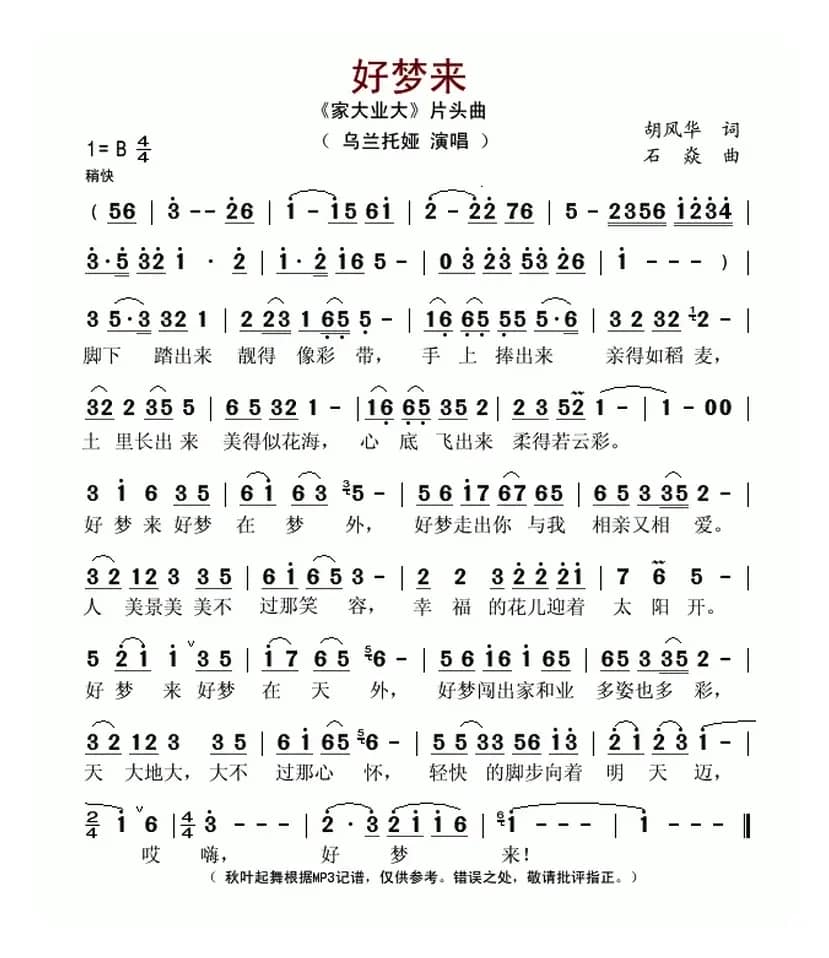 好梦来
《家大业大》片头曲
( 乌兰托娅 演唱 )
胡风华 词
石焱 曲
1= B 4/4
稍快
( 56 | 3 - - 26 | 1 - 15 61 | 2 - 22 76 | 5 - 2356 1234 |
3·5 32 1 · 2 | 1·2 16 5 - | 0 3 23 53 26 | 1 - - - ) |
3 5·3 32 1 | 2 23 1 65 5 - | 16 65 55 5·6 | 3 2 32 1 2 - |
脚下 踏出来 靓得 像彩 带, 手 上 捧出来 亲得如稻 麦,
32 2 35 5 | 6 5 32 1 - | 16 65 35 2 | 2 3 52 1 - | 1 - 00 |
土 里长出 来 美得似花海, 心 底 飞出来 柔得若云彩。
3 1 6 3 5 | 6 1 6 3 3 5 - | 5 6 17 67 65 | 6 5 3 35 2 - |
好 梦 来 好梦 在 梦 外, 好梦走出你 与我 相亲又相 爱。
3 2 12 3 3 5 | 6 1 6 5 3 - | 2 2 3 2 2 21 | 7 6 5 - |
人 美景美 美不 过那笑 容, 幸 福 的花儿迎着 太 阳 开。
5 2 1 1 ∨ 3 5 | 1 7 6 5 5 6 - | 5 6 16 1 65 | 65 3 35 2 - |
好 梦 来 好梦 在 天 外, 好梦闯出家和业 多姿也多 彩,
3 2 12 3 3 5 | 6 1 65 5 6 - | 5 5 33 56 13 | 2 1 2 3 1 - |
天 大地大, 大不 过那心 怀, 轻快 的脚步向着 明 天 迈,
2/4 1 ∨ 6 | 4/4 3 - - - | 2 · 3 2 1 1 6 | 6 1 - - - | 1 - - - ‖
哎 嗨, 好 梦 来!
( 秋叶起舞根据MP3记谱，仅供参考。错误之处，敬请批评指正。)